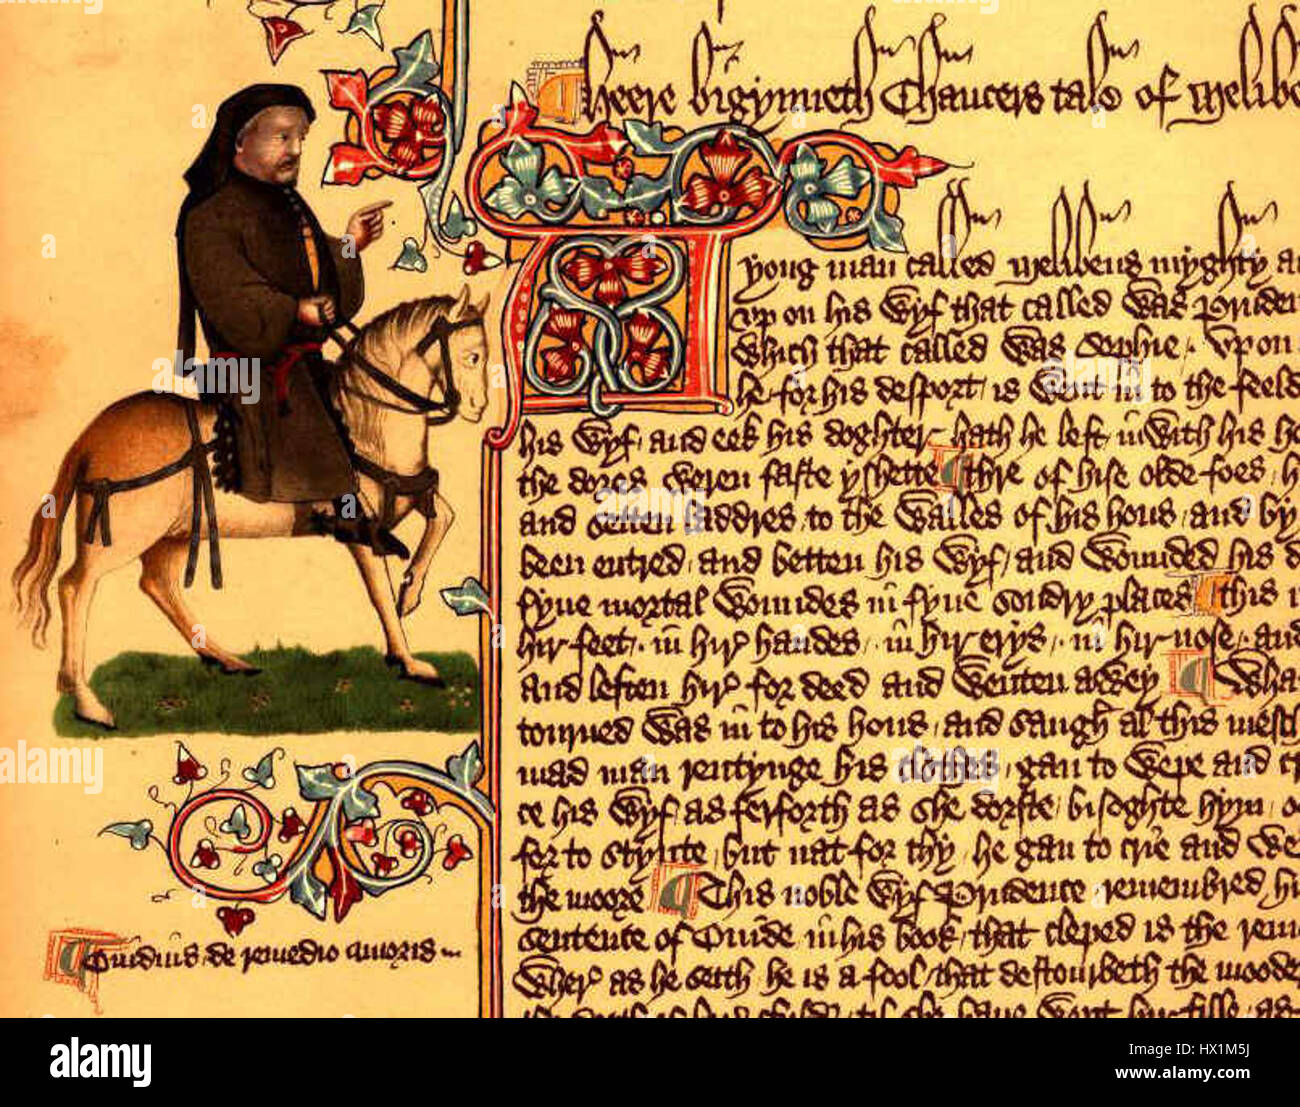 Heere bigynneth Chaucers tale of Melibe
A
yong man called Melibeus myghty a
up on his wyf that called was Pruden
which that called was Sophie. Upon
he for his desport is went in to the feeld
his wyf and eek his doghter hath he left inwith his ho
the dores weren faste yshette thre of hise olde foes h
and setten laddres to the walles of his hous and by
been entred and betten his wyf and wounded his d
fyue mortal woundes in fyue sondry places this
hir feet in hir handes in hir erys in hir nose and
and leften hir for deed and wenten awey Wha
tourned was in to his hous and saugh al this mesch
mad man rentynge his clothes gan to wepe and cr
ce his wyf as ferforth as she dorste bisoghte hym o
for to stynte but nat for thy he gan to crie and we
the moore This noble wyf Prudence remembred hi
sentence of Ouide in his book that cleped is the reme
wher as he seith he is a fool that destourbeth the mooder
Ouidius de remedio amoris
alamy
alamy stock photo
HX1M5J
www.alamy.com